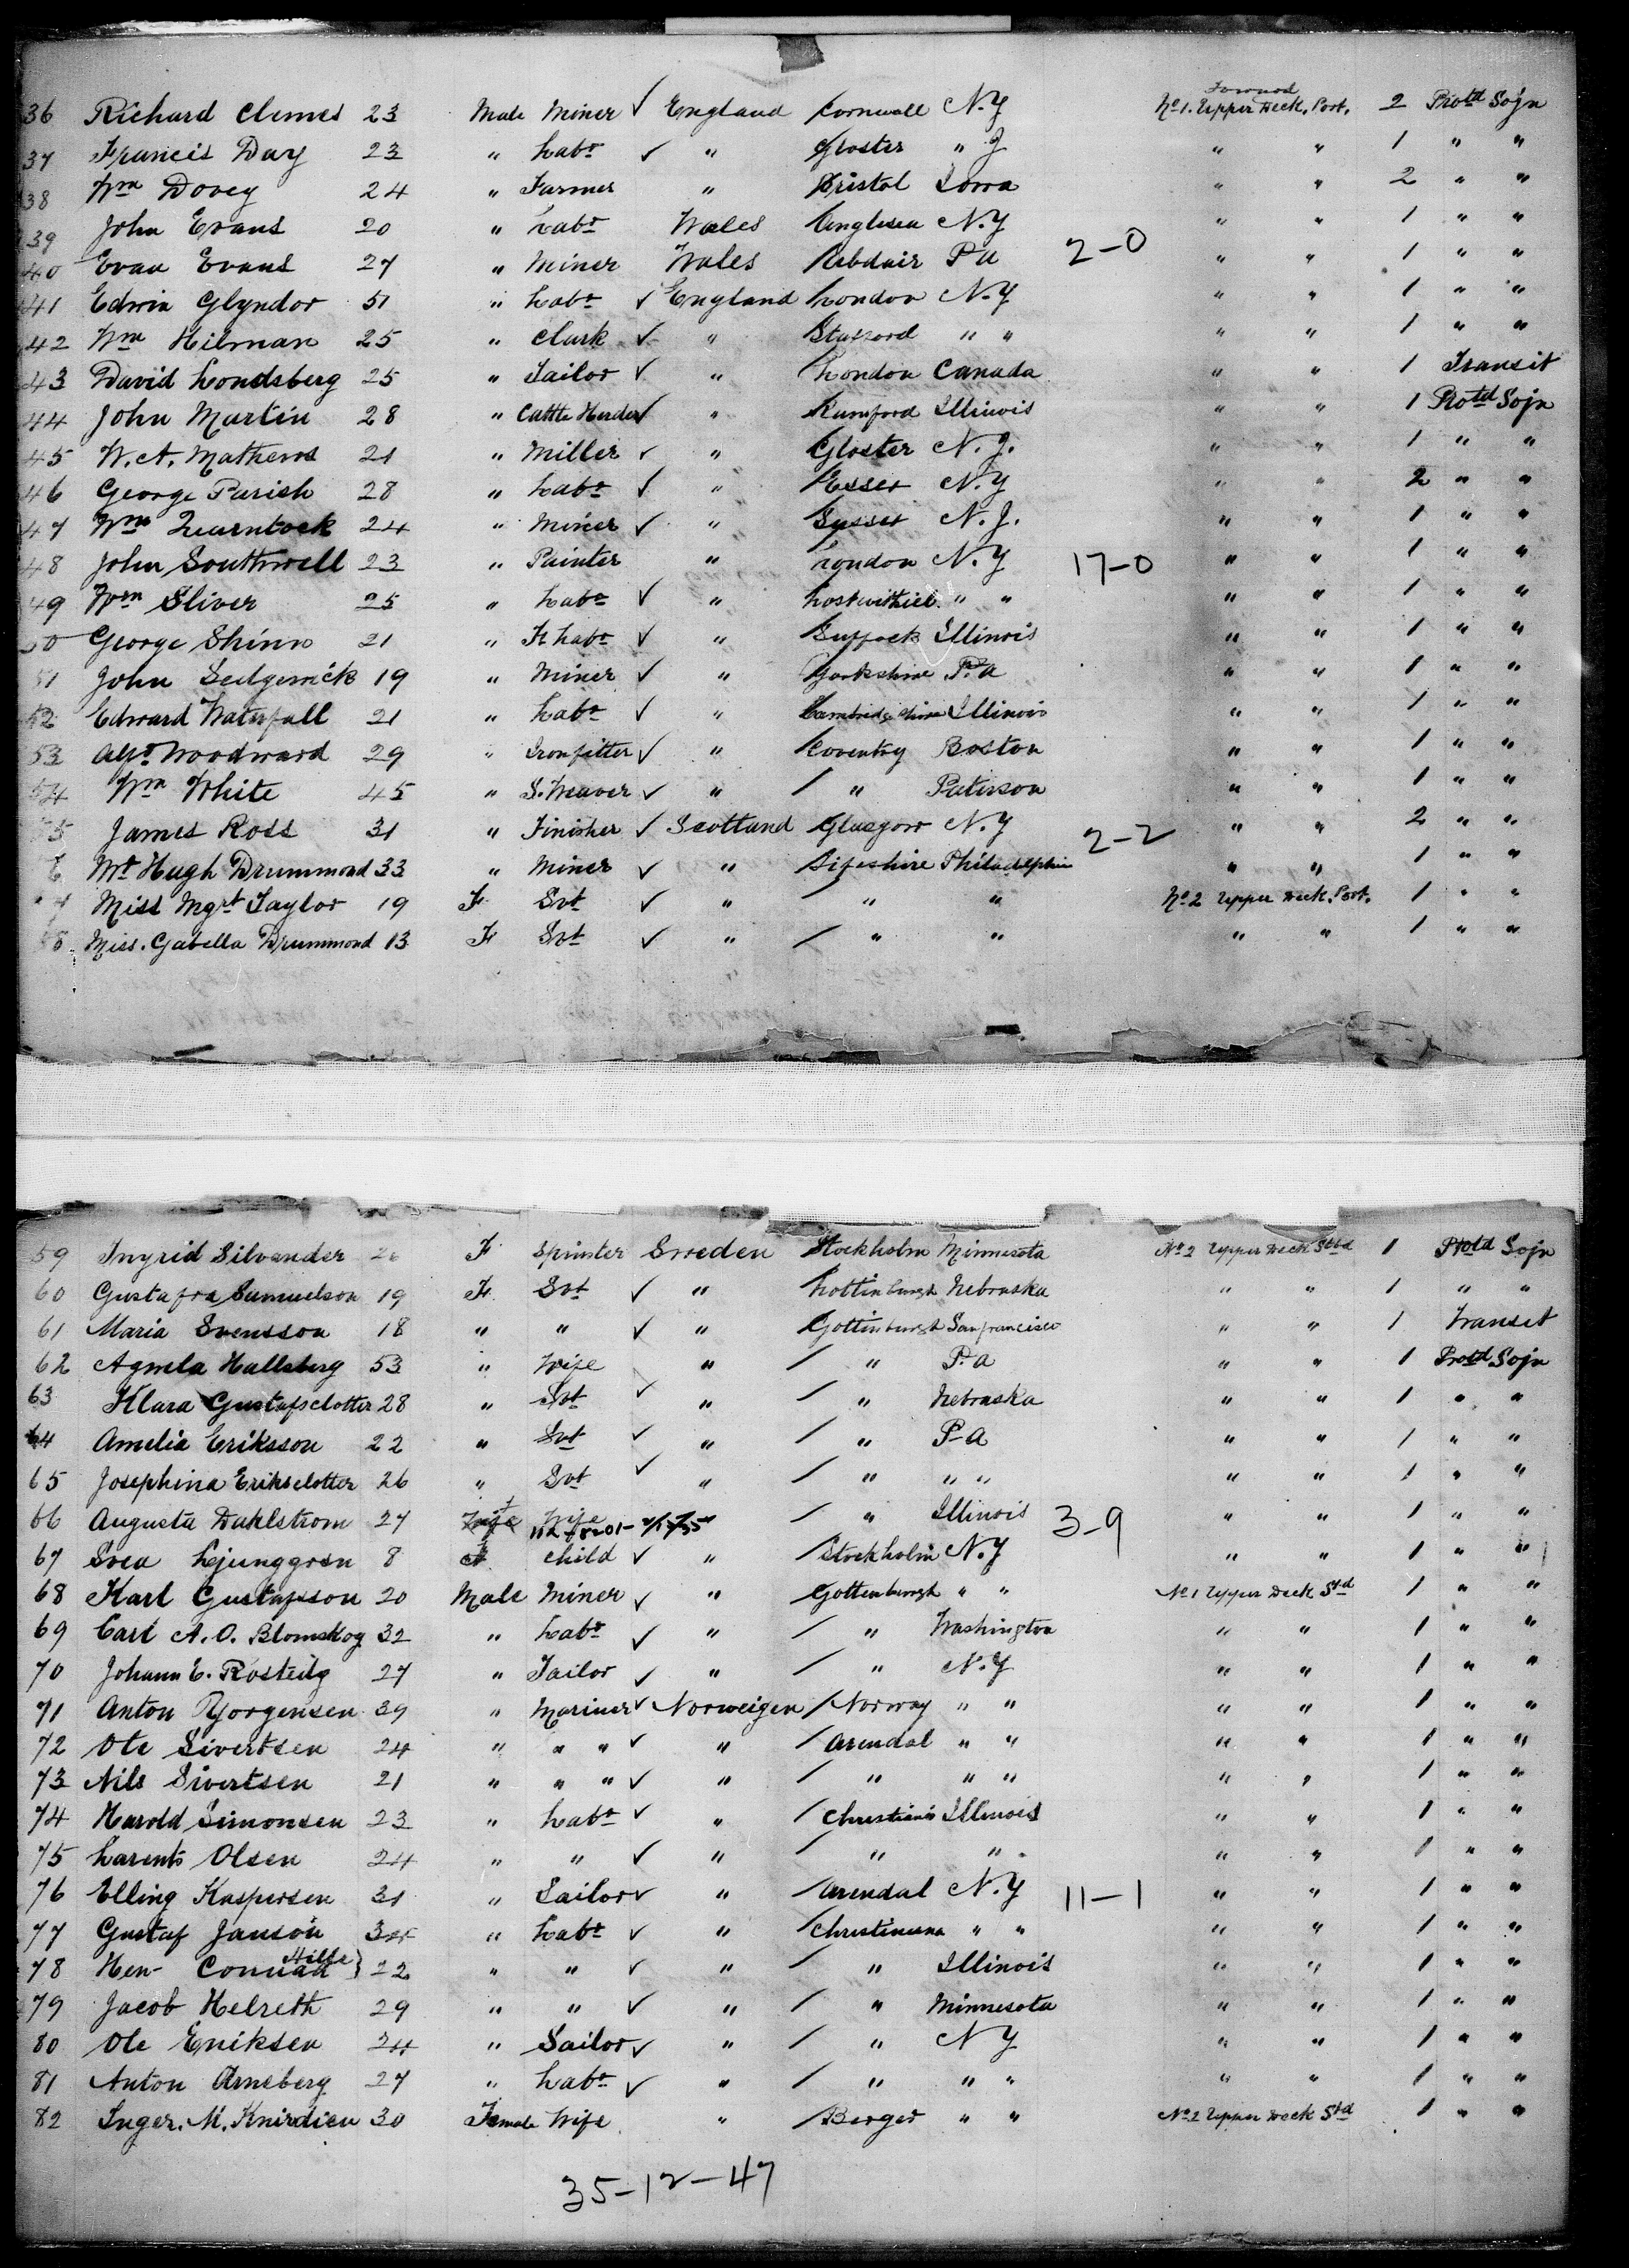 Forward
36 Richard Clemes 23 Male Miner ✓ England Cornwall N.Y No 1. Upper Deck, Port. 2 Protd Sojn
37 Francis Day 23 " Labr ✓ " Gloster " J " " 1 " "
38 Wm Dovey 24 " Farmer " Bristol Iowa " " 2 " "
39 John Evans 20 " Labr Wales Anglesea N.Y " " 1 " "
40 Evan Evans 27 " Miner Wales Abdair Pa 2-0 " " 1 " "
41 Edwin Glyndor 51 " Labr ✓ England London N.Y " " 1 " "
42 Wm Hilman 25 " Clark ✓ " Stafford " " " " 1 " "
43 David Londsberg 25 " Tailor ✓ " London Canada " " 1 Transit
44 John Martin 28 " Cattle Herder ✓ " Rumford Illinois " " 1 Protd Sojn
45 W.A. Mathews 21 " Miller ✓ " Gloster N.J. " " 1 " "
46 George Parish 28 " Labr ✓ " Essex N.Y " " 2 " "
47 Wm 24 " Miner ✓ " Sussex N.J. " " 1 " "
48 John Southwell 23 " Painter " London N.Y 17-0 " " 1 " "
49 Wm Sliver 25 " Labr ✓ " Lostwithiel " " " " 1 " "
50 George Shinn 21 " F Labr ✓ " Suffock Illinois " " 1 " "
51 John Sedgewick 19 " Miner ✓ " Yorkshire Pa " " 1 " "
52 Edward Waterfall 21 " Labr ✓ " Cambridgeshire Illinois " " 1 " "
53 Woodward 29 " Ironfitter ✓ " Coventry Boston " " 1 " "
54 Wm White 45 " S. Weaver ✓ " / " Paterson " " 1 " "
55 James Ross 31 " Finisher ✓ Scotland Glasgow N.Y 2-2 " " 2 " "
6 Mr Hugh Drummond 33 " Miner ✓ " Fifeshire Philadelphia " " 1 " "
7 Miss Mgrt Taylor 19 F Svt ✓ " / " " No 2 Upper Deck, Port. 1 " "
58 Miss. Gabella Drummond 13 F Svt ✓ " / " " " " 1 " "
59 Ingrid Silvander 26 F Spinster Sweden Stockholm Minnesota No 2 Upper Deck Stbd 1 Protd Sojn
60 Gustafva Samuelson 19 F. Svt ✓ " Gottinburgh Nebraska " " 1 " "
61 Maria Svensson 18 " " ✓ " Gottinburgh Sanfrancisco " " 1 Transit
62 Agneta Hallsberg 53 " Wife " / " Pa " " 1 Protd Sojn
63 Klara Gustafsclotter 28 " Svt ✓ " / " Nebraska " " 1 " "
64 Amelia Eriksson 22 " Svt ✓ " / " Pa " " 1 " "
65 Josephina Eriksclotter 26 " Svt ✓ " / " " " " " 1 " "
66 Augusta Dahlstrom 27 Wife / " Illinois 3-9 " " 1 " "
67 Svea Ljunggren 8 child ✓ " / Stockholm N.Y " " 1 " "
68 Karl Gustafsson 20 Male Miner ✓ " / Gottenburgh " " No 1 Upper Deck Std 1 " "
69 Carl A.O. Blomskog 32 " Labr ✓ " / " Washington " " 1 " "
70 Johann E. 27 " Tailor ✓ " / " N.Y " " 1 " "
71 Anton Yorgensen 39 " Mariner ✓ Norweigen / Norway " " " " 1 " "
72 Ole Sivertsen 24 " " " ✓ " / Arendal " " " " 1 " "
73 Nils Sivertsen 21 " " " ✓ " / " " " " " 1 " "
74 Harold Simonsen 23 " Labr ✓ " / Christiania Illinois " " 1 " "
75 Larents Olsen 24 " " ✓ " / " " " " 1 " "
76 Elling Kaspersen 31 " Sailor ✓ " / Arendal N.Y 11-1 " " 1 " "
77 Gustaf Janson 34 " Labr ✓ " / Christineana " " " " 1 " "
78 Hen- Conrad Hilse } 22 " " ✓ " / " Illinois " " 1 " "
79 Jacob Helreth 29 " " ✓ " / " Minnesota " " 1 " "
80 Ole Eriksen 24 " Sailor ✓ " / " N.Y " " 1 " "
81 Anton Arneberg 27 " Labr ✓ " / " " " " " 1 " "
82 Inger. M. Knirdien 30 Female Wife " / Berger " " No 2 Upper Deck Std 1 " "
35-12-47